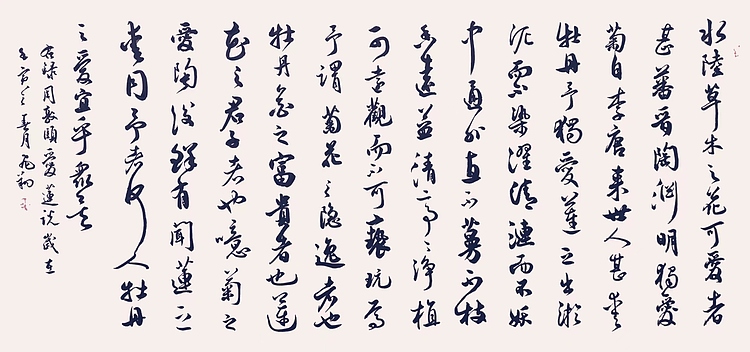 水陸草木之花可愛者
甚蕃晉陶淵明獨愛
菊自李唐来世人甚愛
牡丹予獨愛蓮之出淤
泥而不染濯清漣而不妖
中通外直不蔓不枝
香遠益清亭〻淨植
可遠觀而不可褻玩焉
予謂菊花之隱逸者也
牡丹花之富貴者也蓮
花之君子者也噫菊之
愛陶後鮮有聞蓮之
愛同予者何人牡丹
之愛宜乎衆矣
右錄周敦頤愛蓮說歲在
壬寅之春月